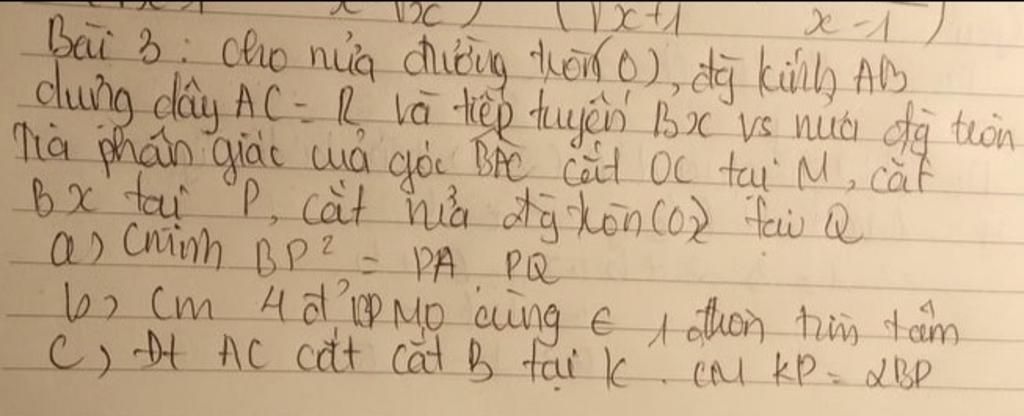 x √x) (√x+1 x-1)
Bài 3: Cho nửa đường tròn(O), đg kính AB
dựng dây AC = R và tiếp tuyến Bx vs nửa đg tròn
Tia phân giác của góc BAC cắt OC tại M, cắt
Bx tại P, cắt nửa đg tròn(O) tại Q
a) Cminh BP² = PA . PQ
b) Cm 4 đ' BPMO cùng ∈ 1 đtròn tìm tâm
C) Đt AC cắt cắt B tại K. CM KP = 2BP